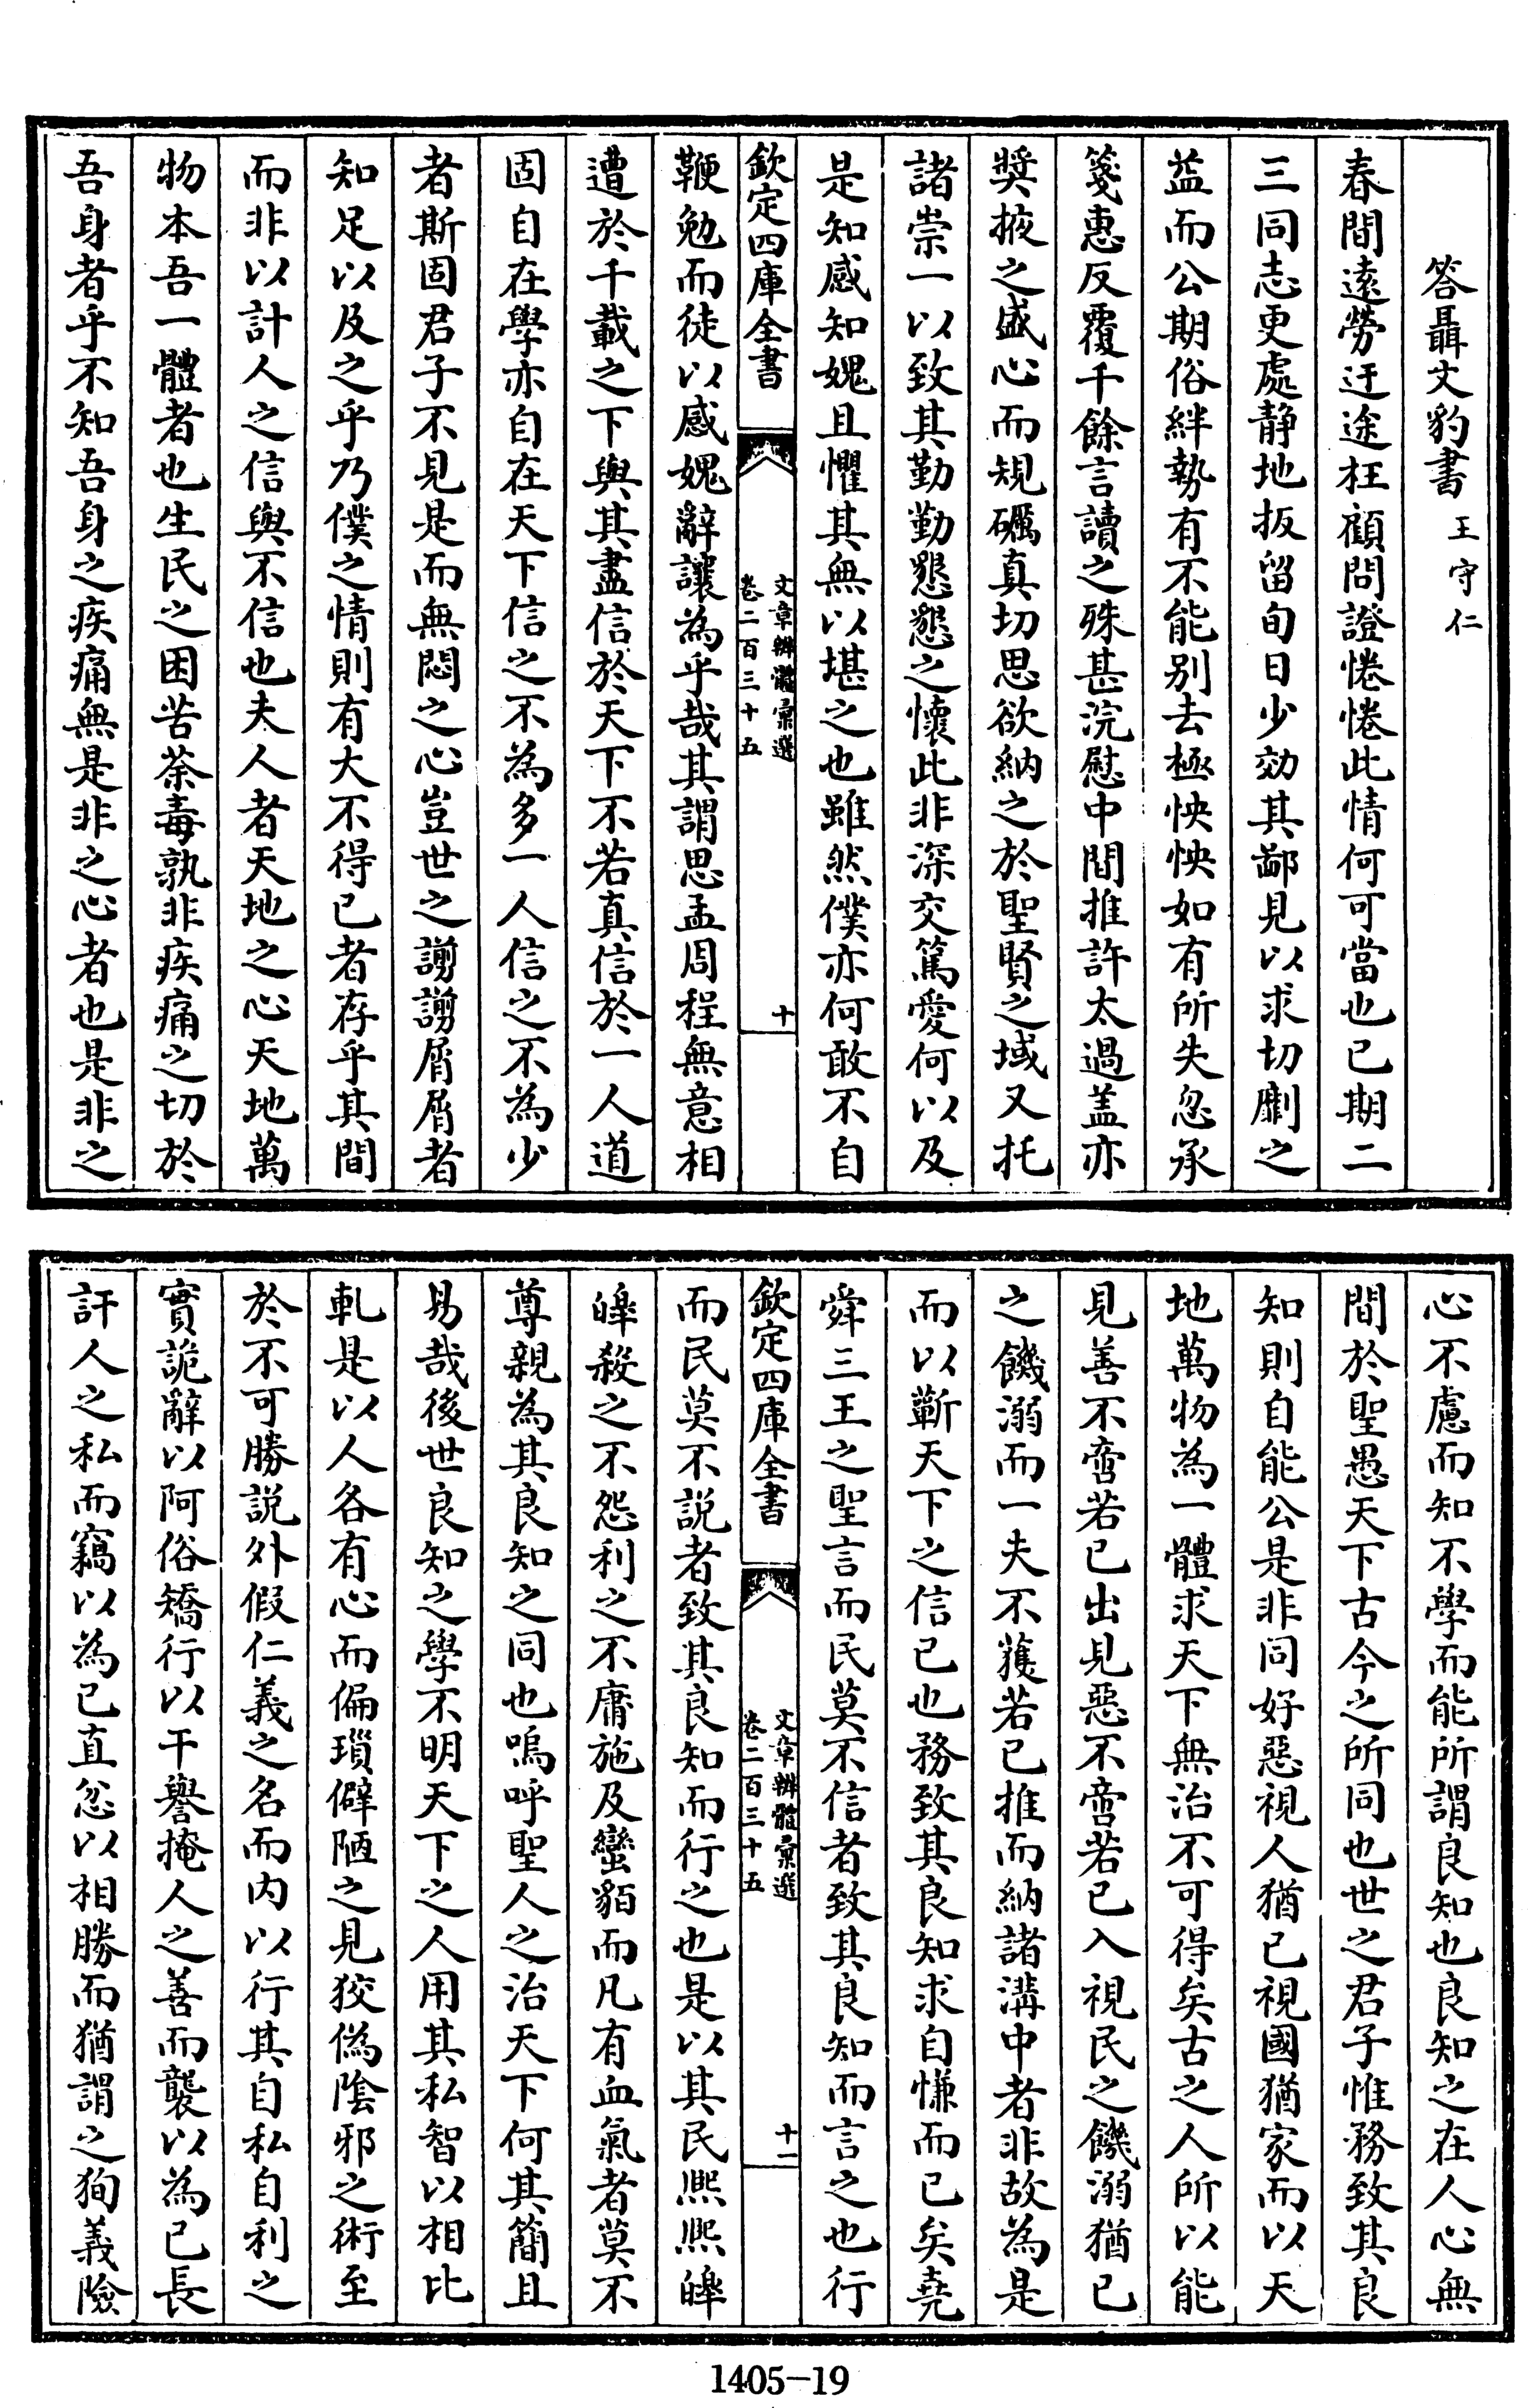 答聶文豹書 王守仁
春間遠勞迂途枉顧問證惓惓此情何可當也已期二
三同志更處靜地扳留旬日少効其鄙見以求切劘之
益而公期俗絆勢有不能别去極怏怏如有所失忽承
箋惠反覆千餘言讀之殊甚浣慰中間推許太過盖亦
奬掖之盛心而規礪真切思欲納之於聖賢之域又托
諸崇一以致其勤勤懇懇之懷此非深交篤愛何以及
是知感知媿且懼其無以堪之也雖然僕亦何敢不自
欽定四庫全書
文章辨體彚選
卷二百三十五
十
鞭勉而徒以感媿辭讓為乎哉其謂思孟周程無意相
遭於千載之下與其盡信於天下不若真信於一人道
固自在學亦自在天下信之不為多一人信之不為少
者斯固君子不見是而無悶之心豈世之謭謭屑屑者
知足以及之乎乃僕之情則有大不得已者存乎其間
而非以計人之信與不信也夫人者天地之心天地萬
物本吾一體者也生民之困苦荼毒孰非疾痛之切於
吾身者乎不知吾身之疾痛無是非之心者也是非之
心不慮而知不學而能所謂良知也良知之在人心無
間於聖愚天下古今之所同也世之君子惟務致其良
知則自能公是非同好惡視人猶已視國猶家而以天
地萬物為一體求天下無治不可得矣古之人所以能
見善不啻若已出見惡不啻若已入視民之饑溺猶已
之饑溺而一夫不獲若已推而納諸溝中者非故為是
而以蘄天下之信已也務致其良知求自慊而已矣堯
舜三王之聖言而民莫不信者致其良知而言之也行
欽定四庫全書
文章辨體彚選
卷二百三十五
十一
而民莫不説者致其良知而行之也是以其民熈熈皥
皥殺之不怨利之不庸施及蠻貊而凡有血氣者莫不
尊親為其良知之同也嗚呼聖人之治天下何其簡且
易哉後世良知之學不明天下之人用其私智以相比
軋是以人各有心而偏瑣僻陋之見狡偽陰邪之術至
於不可勝説外假仁義之名而内以行其自私自利之
實詭辭以阿俗矯行以干譽掩人之善而襲以為已長
訐人之私而竊以為已直忿以相勝而猶謂之狥義險
1405-19